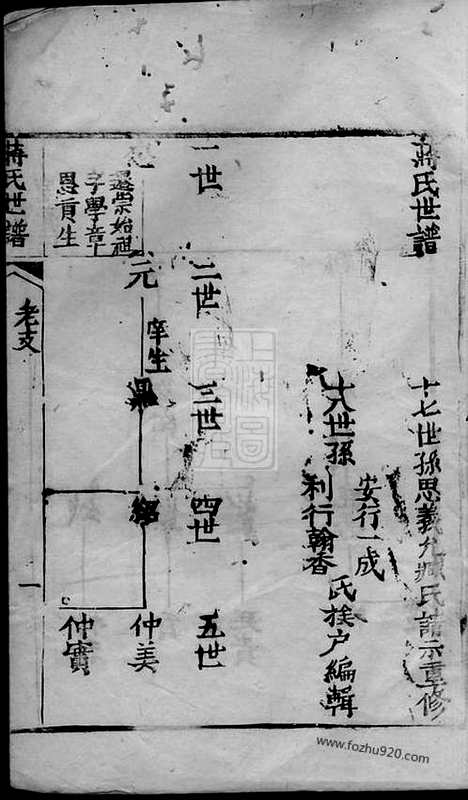 蔣氏世譜
十七世孫思義允臧氏請示重修
安行一成
十八世孫
利行翰香
氏族户編輯
一世
二世
三世
四世
五世
遷崇始祖
字學章
恩貢生
元
庠生
鼎
紹
仲美
仲實
蔣氏世譜
老支
一
www.fozhu920.com